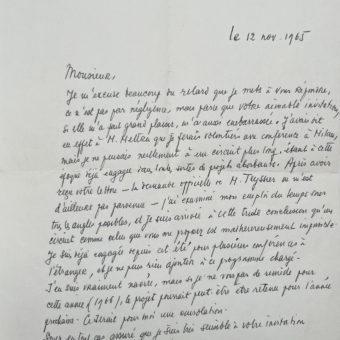 le 12 nov. 1965
Monsieur,
Je m'excuse beaucoup du retard que je mets à vous répondre,
ce n'est pas par négligence, mais parce que votre aimable invitation,
si elle m'a fait grand plaisir, m'a aussi embarrassée. J'avais dit
en effet à M. que je ferais volontiers une conférence à Milan,
mais je ne pensais nullement à un circuit plus long, étant à cette
époque déjà engagée dans toutes sortes de projets absorbants. Après avoir
reçu votre lettre — la demande officielle de M. Teyssier ne m'est
d'ailleurs pas parvenue — j'ai examiné mon emploi du temps sous
tous les angles possibles, et je suis arrivée à cette triste conclusion qu'un
circuit comme celui que vous me proposez est malheureusement impossible.
Je suis déjà engagée depuis cet été pour plusieurs conférences à
l'étranger, et je ne puis rien ajouter à ce programme chargé.
J'en suis vraiment navrée, mais si je ne vois pas de remède pour
cette année (1966), le projet pourrait peut être être retenu pour l'année
prochaine. Ce serait pour moi une consolation.
Soyez en tout cas assuré que je suis très sensible à votre invitation